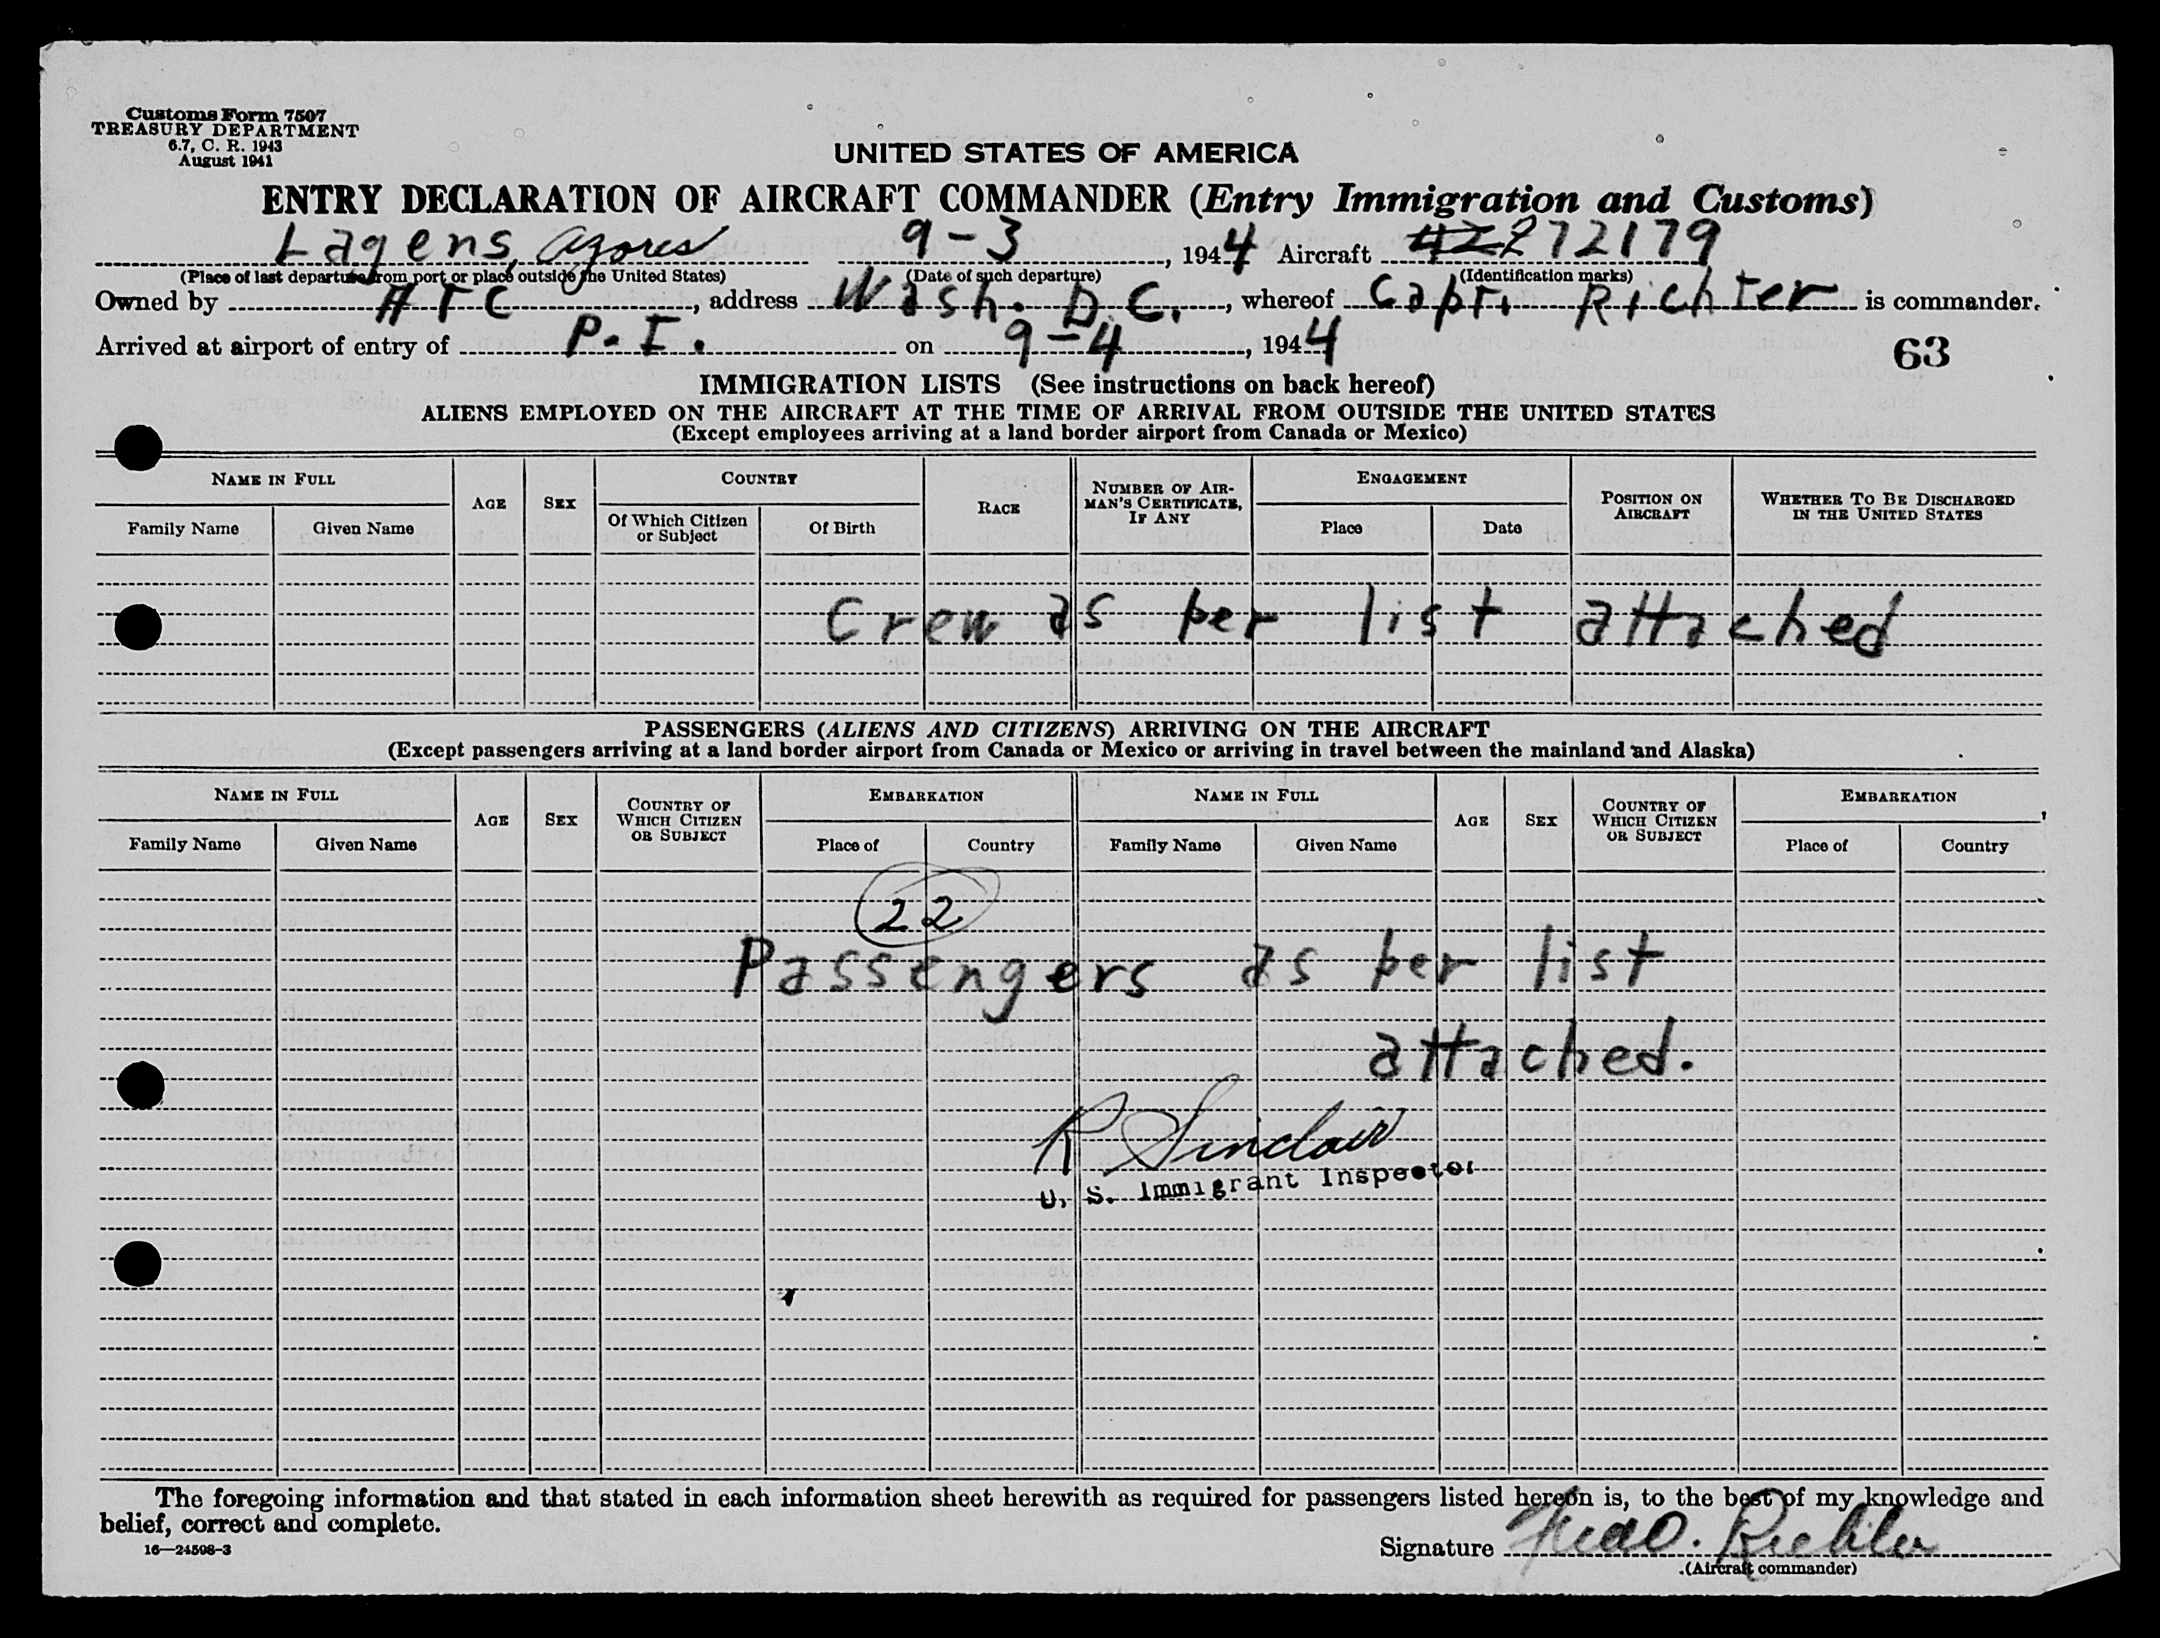 Customs Form 7507
TREASURY DEPARTMENT
6.7, C. R. 1943
August 1941
UNITED STATES OF AMERICA
ENTRY DECLARATION OF AIRCRAFT COMMANDER (Entry Immigration and Customs)
Lagens, Azores 9-3, 1944 Aircraft 272179
(Place of last departure from port or place outside the United States) (Date of such departure) (Identification marks)
Owned by ATC, address Wash. D.C., whereof Capt. Richter is commander.
Arrived at airport of entry of P.I. on 9-4, 1944
63
IMMIGRATION LISTS (See instructions on back hereof)
ALIENS EMPLOYED ON THE AIRCRAFT AT THE TIME OF ARRIVAL FROM OUTSIDE THE UNITED STATES
(Except employees arriving at a land border airport from Canada or Mexico)
NAME IN FULL AGE SEX COUNTRY RACE NUMBER OF AIRMAN'S CERTIFICATE, IF ANY ENGAGEMENT POSITION ON AIRCRAFT WHETHER TO BE DISCHARGED IN THE UNITED STATES
Family Name Given Name Of Which Citizen or Subject Of Birth Place Date
Crew as per list attached
PASSENGERS (ALIENS AND CITIZENS) ARRIVING ON THE AIRCRAFT
(Except passengers arriving at a land border airport from Canada or Mexico or arriving in travel between the mainland and Alaska)
NAME IN FULL AGE SEX COUNTRY OF WHICH CITIZEN OR SUBJECT EMBARKATION NAME IN FULL AGE SEX COUNTRY OF WHICH CITIZEN OR SUBJECT EMBARKATION
Family Name Given Name Place of Country Family Name Given Name Place of Country
22
Passengers as per list
attached.
R Sinclair
U. S. Immigrant Inspector
The foregoing information and that stated in each information sheet herewith as required for passengers listed hereon is, to the best of my knowledge and
belief, correct and complete.
16—24598-3
Signature O. Richter
(Aircraft commander)